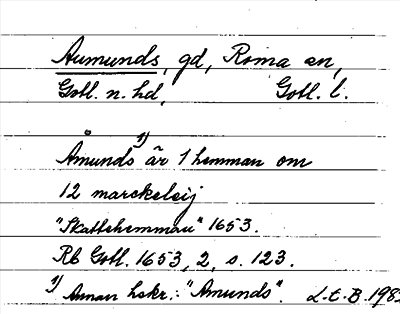 Aumunds, gd, Roma sn,
Gotl. n. hd, Gotl. l.
Åmunds 1) är 1 hemman om
12 marckeleij
"Skattehemman" 1653.
Rb Gotl. 1653, 2, s. 123.
1) Annan hskr.: "Amunds". L.E.B. 198